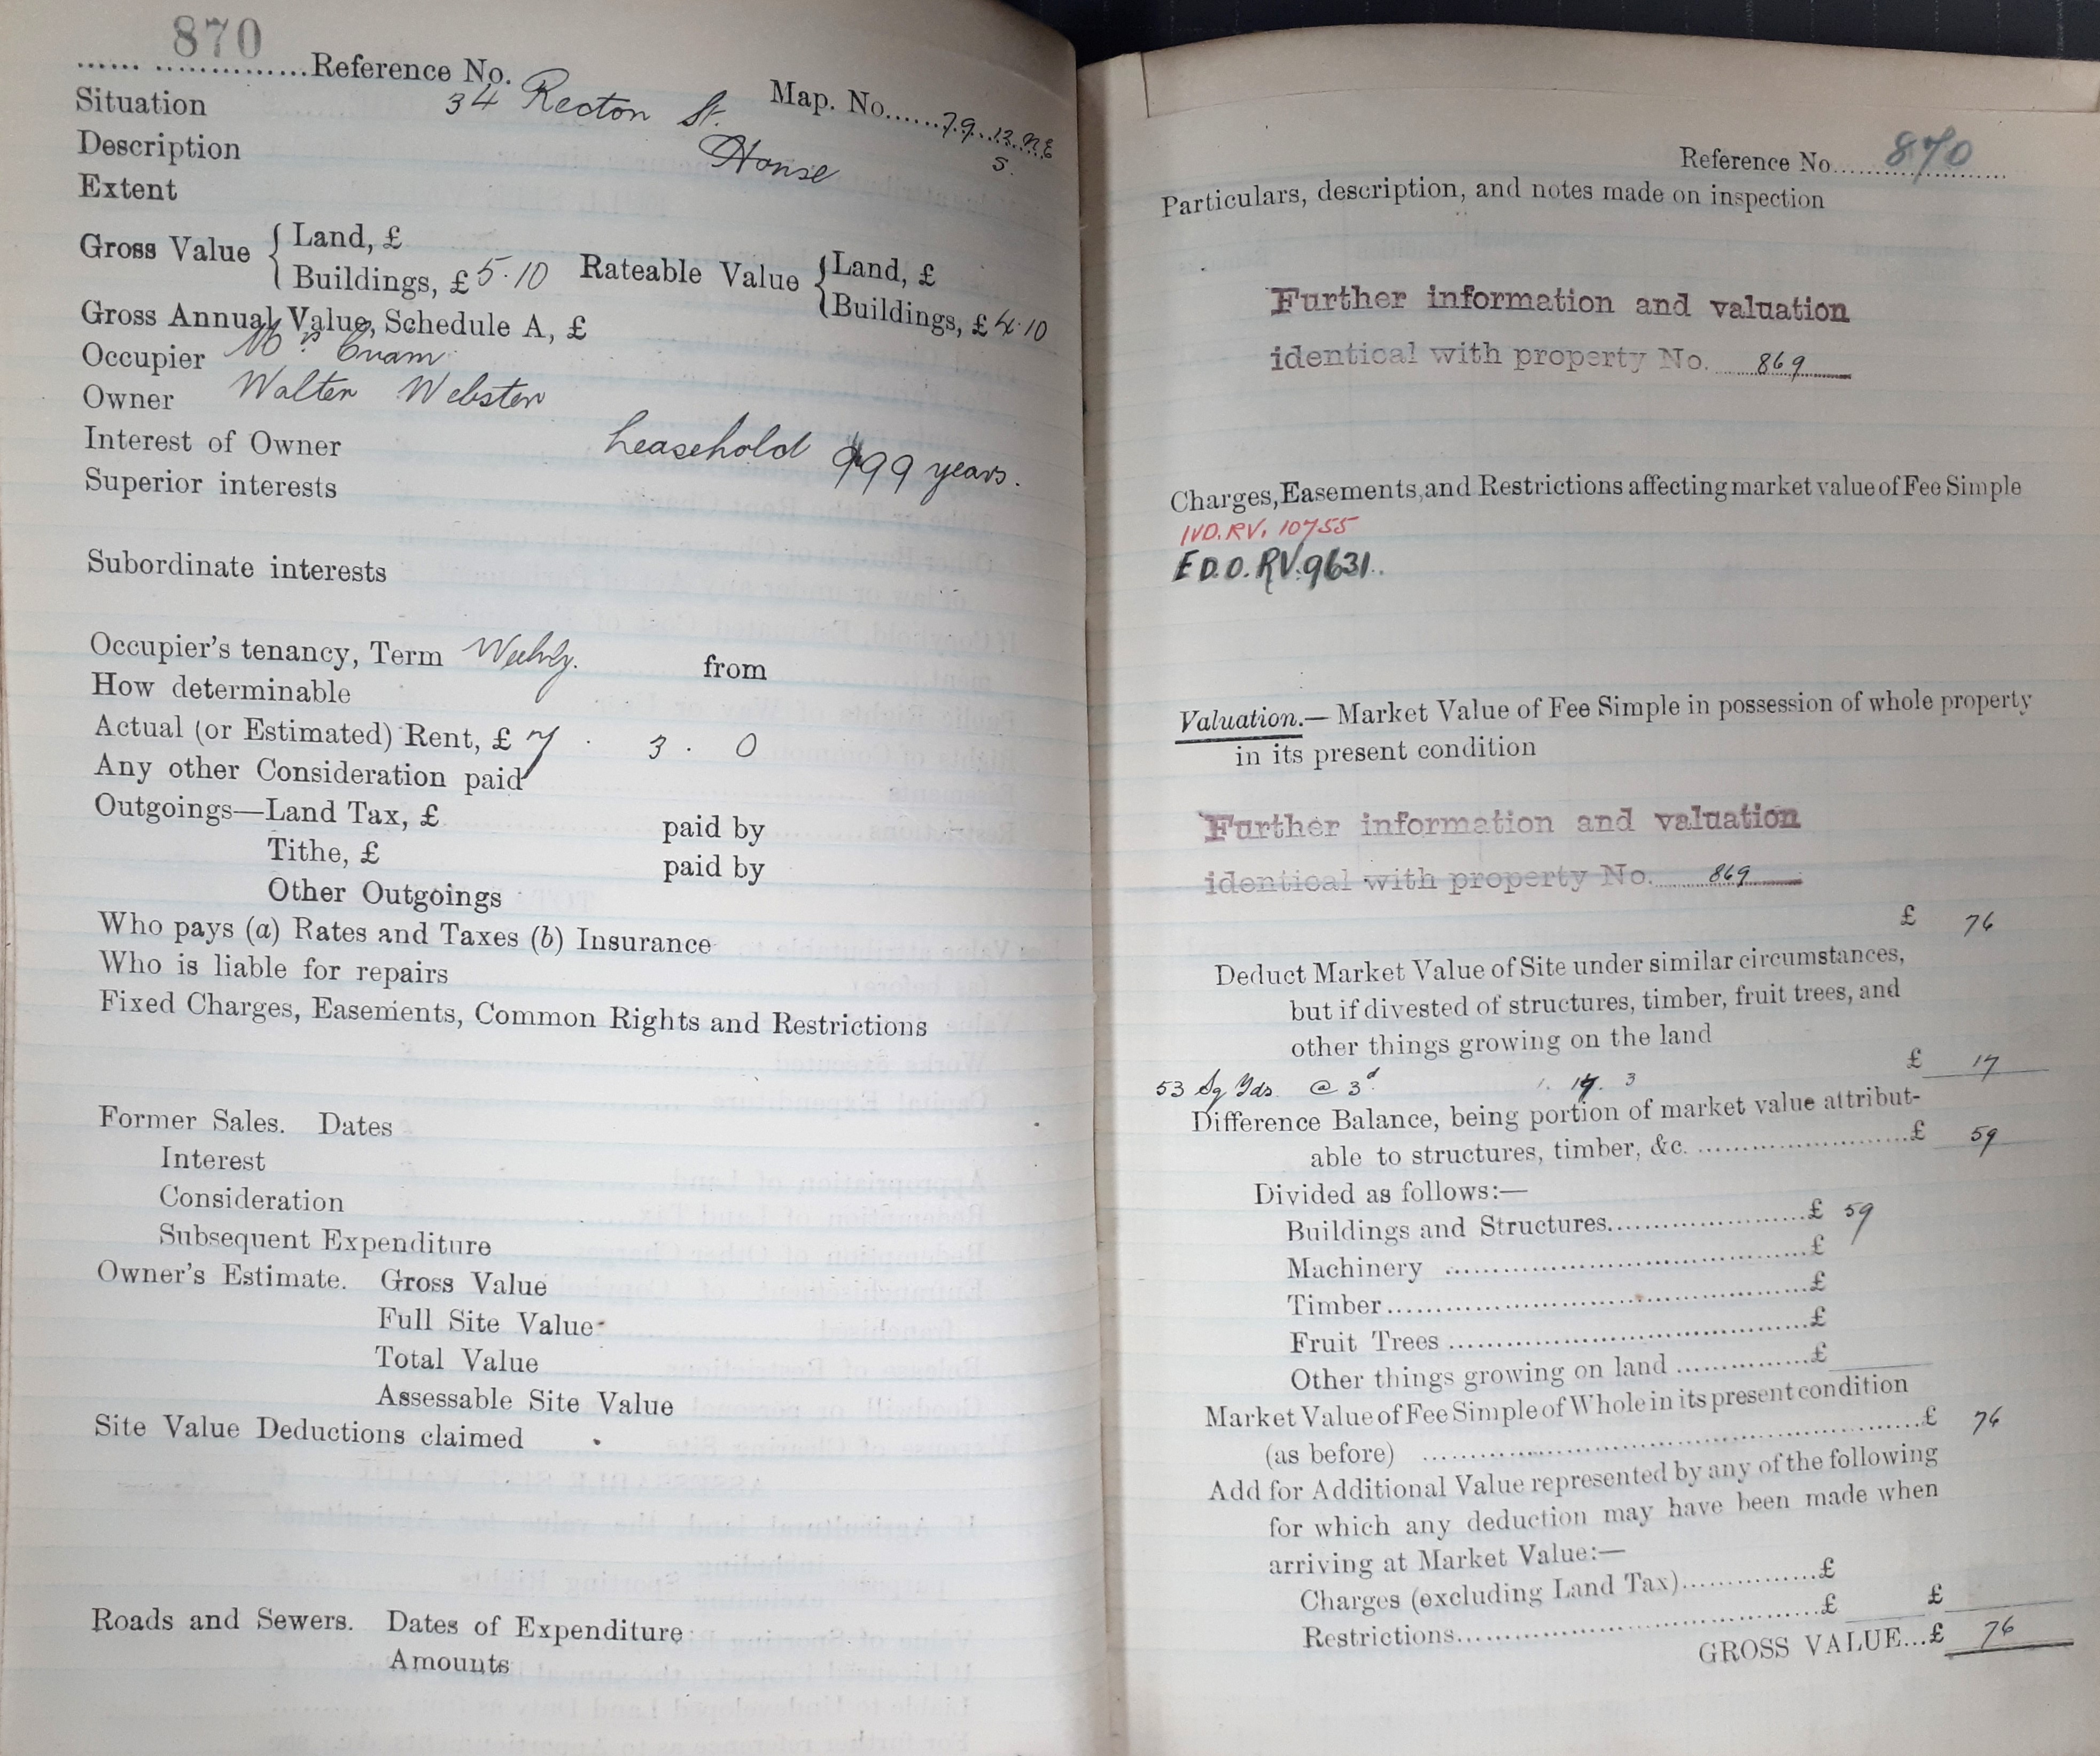 870
Reference No.
Map. No. 79.13.NE
S.
Situation 34 Recton St.
Description House
Extent
Gross Value { Land, £
Buildings, £ 5.10 Rateable Value { Land, £
Buildings, £ 4.10
Gross Annual Value, Schedule A, £
Occupier Mrs
Owner Walter Webster
Interest of Owner Leasehold 999 years.
Superior interests
Subordinate interests
Occupier's tenancy, Term Weekly. from
How determinable
Actual (or Estimated) Rent, £ 7 . 3 . 0
Any other Consideration paid
Outgoings—Land Tax, £ paid by
Tithe, £ paid by
Other Outgoings
Who pays (a) Rates and Taxes (b) Insurance
Who is liable for repairs
Fixed Charges, Easements, Common Rights and Restrictions
Former Sales. Dates
Interest
Consideration
Subsequent Expenditure
Owner's Estimate. Gross Value
Full Site Value
Total Value
Assessable Site Value
Site Value Deductions claimed
Roads and Sewers. Dates of Expenditure
Amounts
Reference No. 870
Particulars, description, and notes made on inspection
Further information and valuation
identical with property No. 869
Charges, Easements, and Restrictions affecting market value of Fee Simple
IVD. RV. 10755
E D.O. RV. 9631.
Valuation.— Market Value of Fee Simple in possession of whole property
in its present condition
Further information and valuation
identical with property No. 869
£ 76
Deduct Market Value of Site under similar circumstances,
but if divested of structures, timber, fruit trees, and
other things growing on the land
£ 17
53 Sq Yds. @ 3d. 1. 14. 3
Difference Balance, being portion of market value attribut-
able to structures, timber, &c. £ 59
Divided as follows:—
Buildings and Structures £ 59
Machinery £
Timber £
Fruit Trees £
Other things growing on land £
Market Value of Fee Simple of Whole in its present condition
(as before) £ 76
Add for Additional Value represented by any of the following
for which any deduction may have been made when
arriving at Market Value:—
Charges (excluding Land Tax) £
Restrictions £ £
GROSS VALUE...£ 76